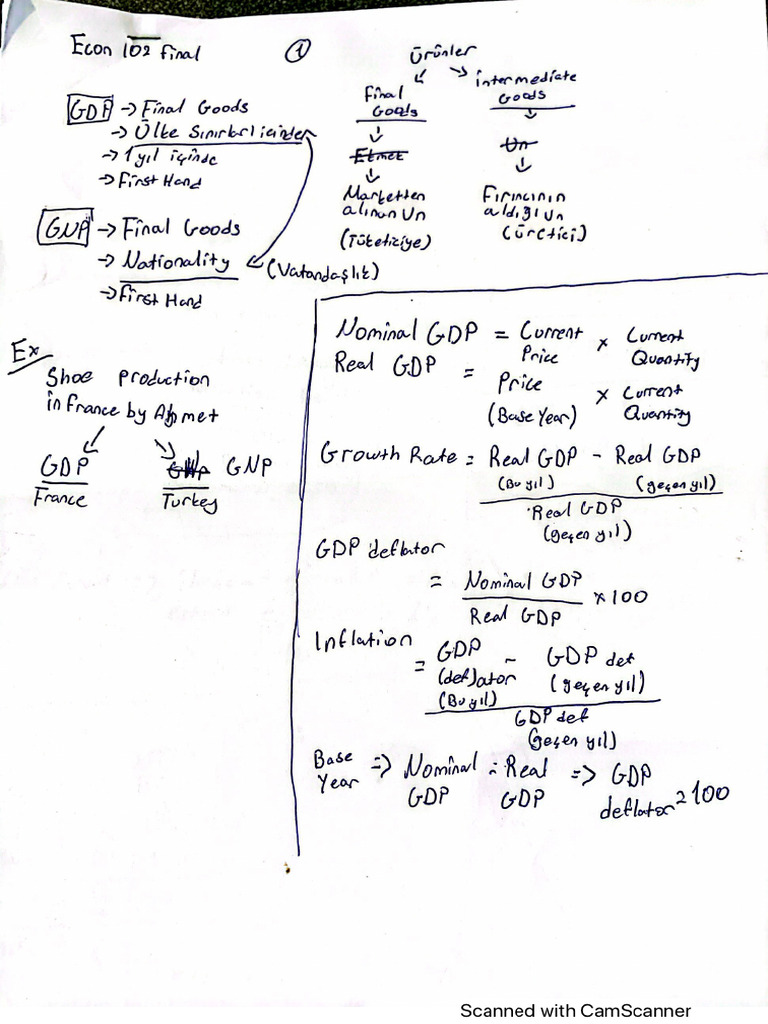 Econ 102 final
①
GDP → Final Goods
→ Ülke Sınırları içinde
→ 1 yıl içinde
→ First Hand
GNP → Final Goods
→ Nationality (Vatandaşlık)
→ First Hand
Ürünler
Final Goods
Ekmek
Marketten alınan Un
(Tüketiciye)
intermediate Goods
Un
Fırıncının aldığı Un
(Üretici)
Ex
Shoe production
in France by Ahmet
GDP
France
GNP GNP
Turkey
Nominal GDP = Current Price × Current Quantity
Real GDP = Price (Base Year) × Current Quantity
Growth Rate = Real GDP - Real GDP
(Bu yıl) (geçen yıl)
Real GDP
(geçen yıl)
GDP deflator
= Nominal GDP × 100
Real GDP
Inflation
= GDP deflator - GDP def
(Bu yıl) (geçen yıl)
GDP def
(geçen yıl)
Base Year => Nominal GDP = Real GDP => GDP deflator = 100
Scanned with CamScanner